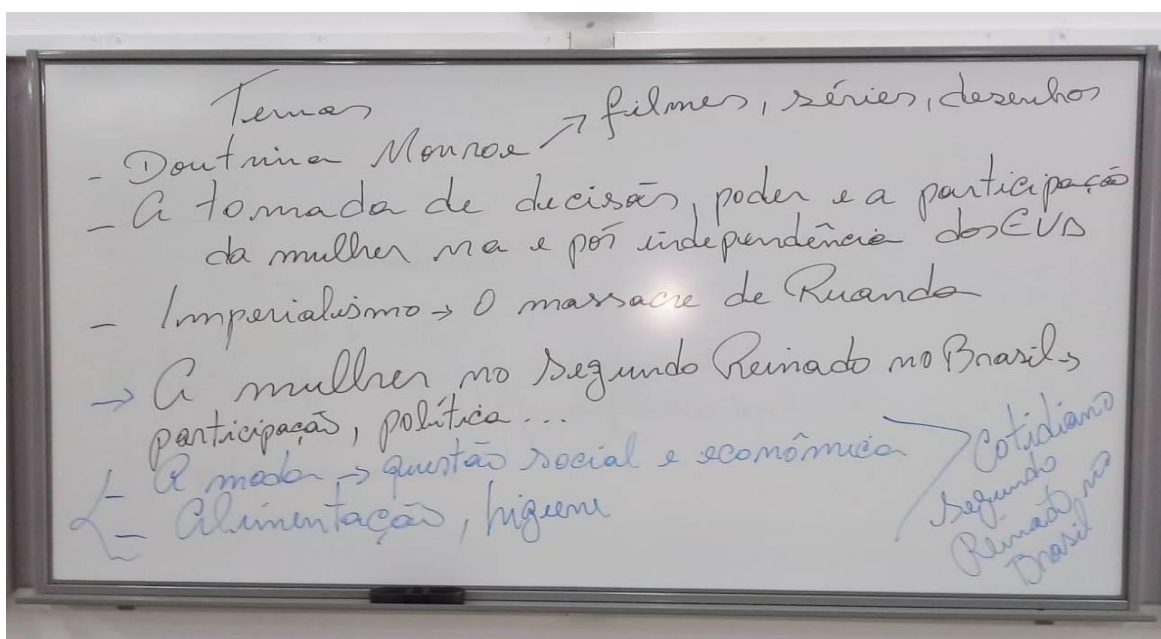 Temas
- Doutrina Monroe → filmes, séries, desenhos
- A tomada de decisão, poder e a participação
da mulher na e pós independência dos EUA
- Imperialismo → O massacre de Ruanda
→ A mulher no Segundo Reinado no Brasil →
participação, política...
- A moda → questão social e econômica
- Alimentação, higiene
Cotidiano
Segundo
Reinado no
Brasil